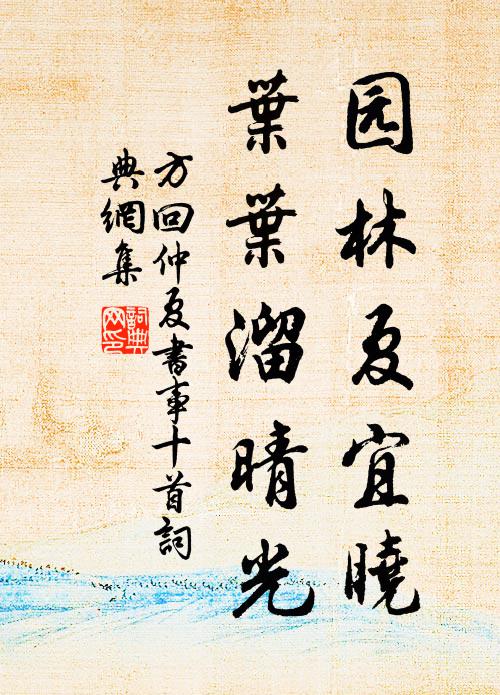 园林夏宜曉
葉葉溜晴光
方回仲夏書事十首詞
典網集
詞典
网印